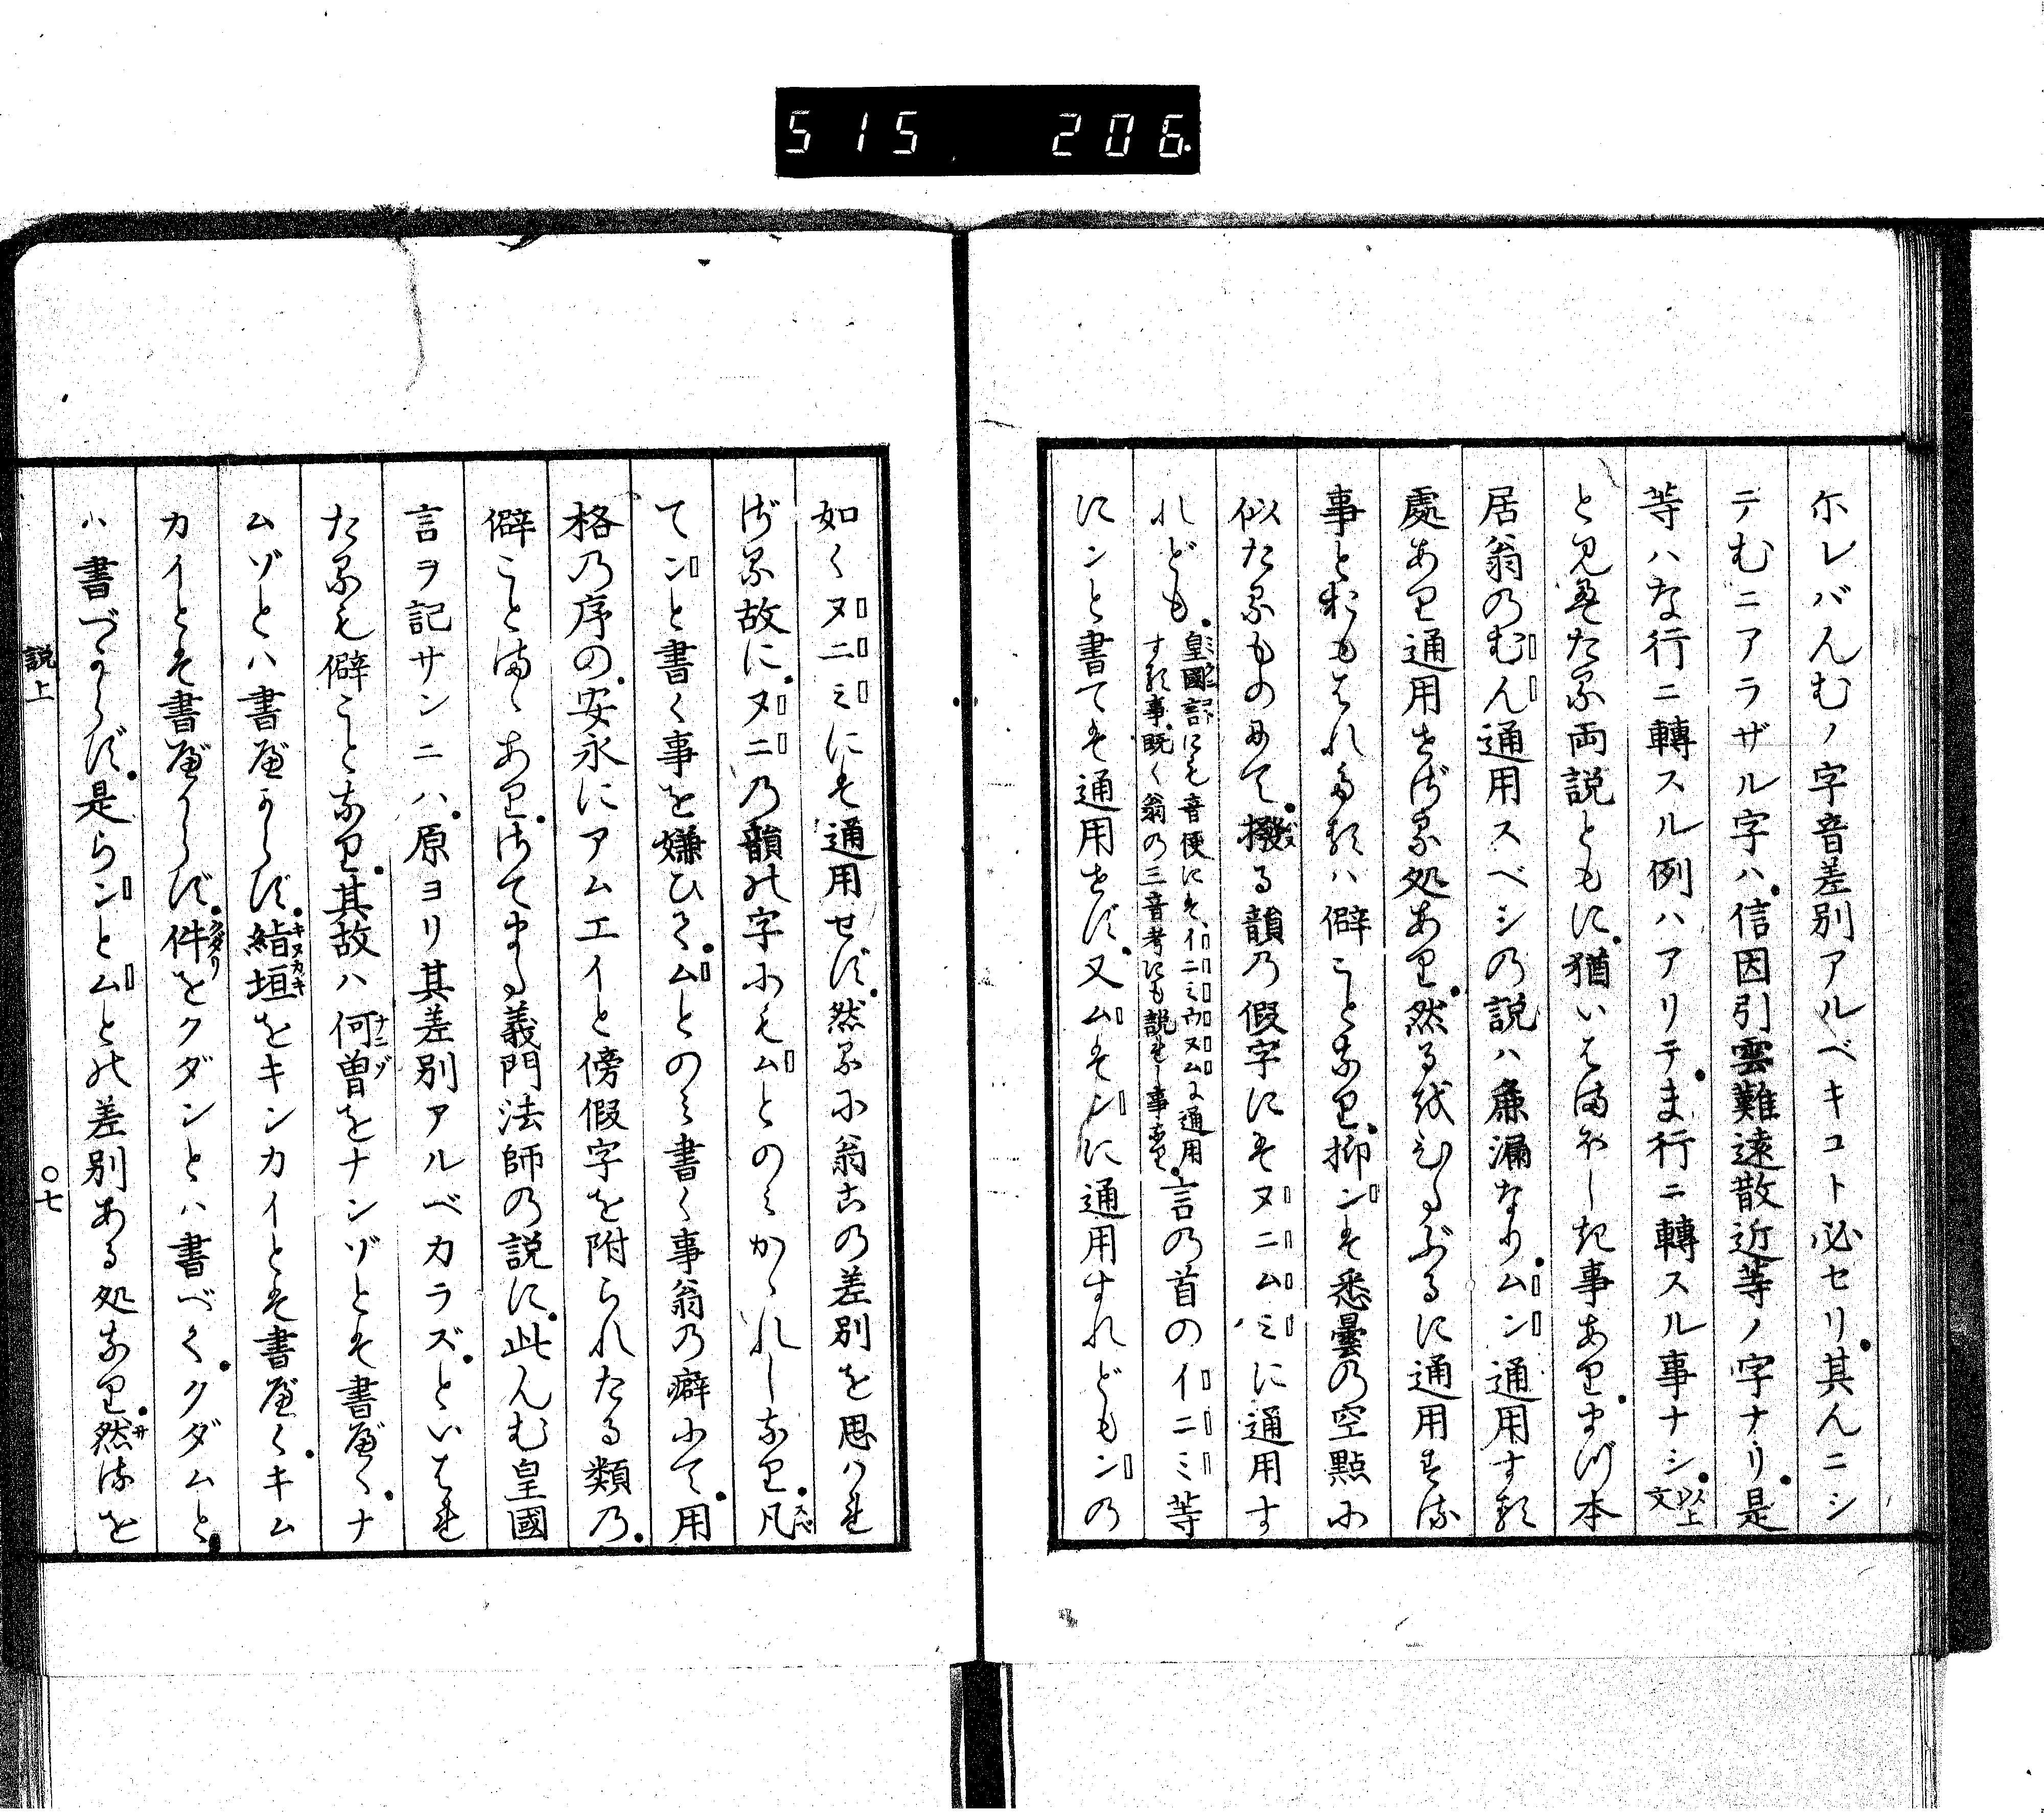 515 206
尓レバんむノ字音差別アルベキコト必セリ其んニシ
テむニアラザル字ハ信因引雲難遠散近等ノ字ナリ是
等ハな行ニ轉スル例ハアリテま行ニ轉スル事ナシ以上文
と見えたる両説ともに猶いはまほしき事ありまづ本
居翁のむん通用スベシの説ハ麁漏なりムン通用する
處あり通用せざる処あり然るを
ひるぶるに通用する
事とおもはれたるハ僻ことなり抑ンは悉曇の空點に
似たるものにて撥る韻の假字にはヌニムミに通用す
れども皇國記にも音便にはイニミウヌムに通用
する事既く翁の三音考にも説る事なり言の首のイニミ等
にンと書ては通用せず又ムはンに通用すれどもンの
如くヌニミには通用せず然るに翁この差別を思ハれ
ざる故にヌニの韻の字にもムとのみかゝれしなり凡
てンと書く事を嫌ひてムとのみ書く事翁の癖にて用
格の序の安永にアムエイと傍假字を附られたる類の
僻ことまゝあり
さてまた義門法師の説に此んむ皇國
言ヲ記サンニハ原ヨリ其差別アルベカラズといはれ
たるも僻ことなり其故ハ何曽をナンゾとは書べくナ
ムゾとハ書べからず絈垣をキンカイとは書べくキム
カイとは書べからず件をクダンとハ書べくクダムと
ハ書べからず是らンとムとの差別ある処なり然るを
説上
○七